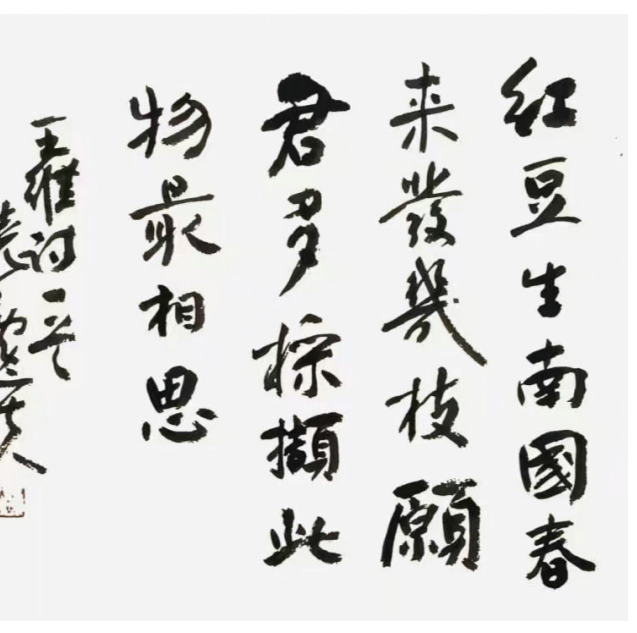 紅豆生南國春
来發幾枝願
君多採擷此
物最相思
王維詩一首